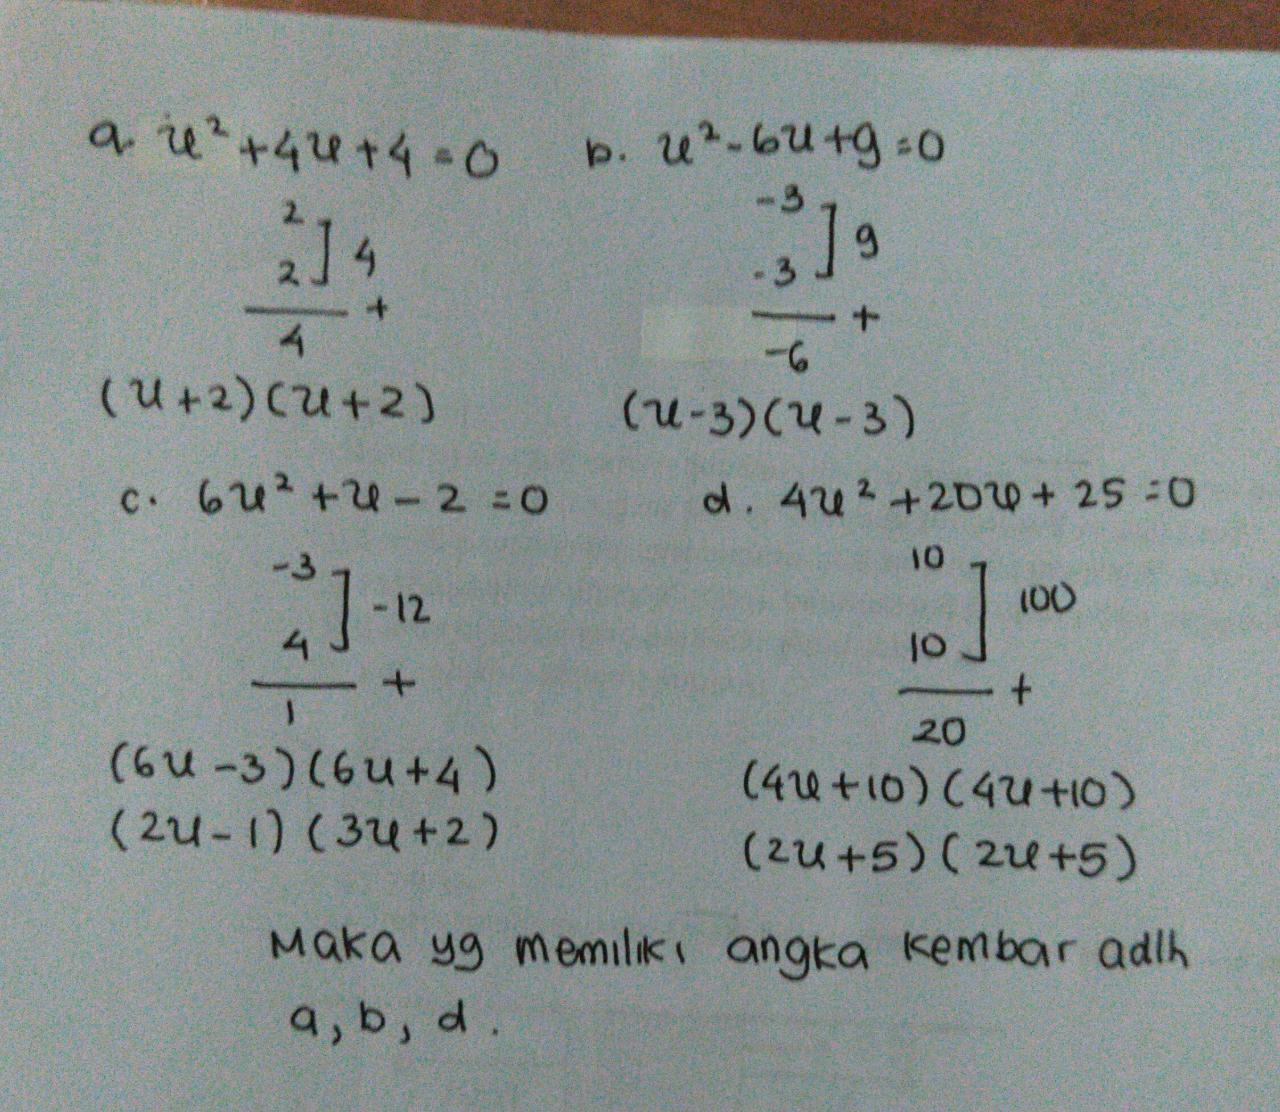 a. x² + 4x + 4 = 0
2
2 ] 4
+
4
(x+2)(x+2)
b. x² - 6x + 9 = 0
-3
-3 ] 9
+
-6
(x-3)(x-3)
c. 6x² + x - 2 = 0
-3
4 ] -12
+
1
(6x-3)(6x+4)
(2x-1)(3x+2)
d. 4x² + 20x + 25 = 0
10
10 ] 100
+
20
(4x+10)(4x+10)
(2x+5)(2x+5)
Maka yg memiliki angka kembar adlh
a, b, d.